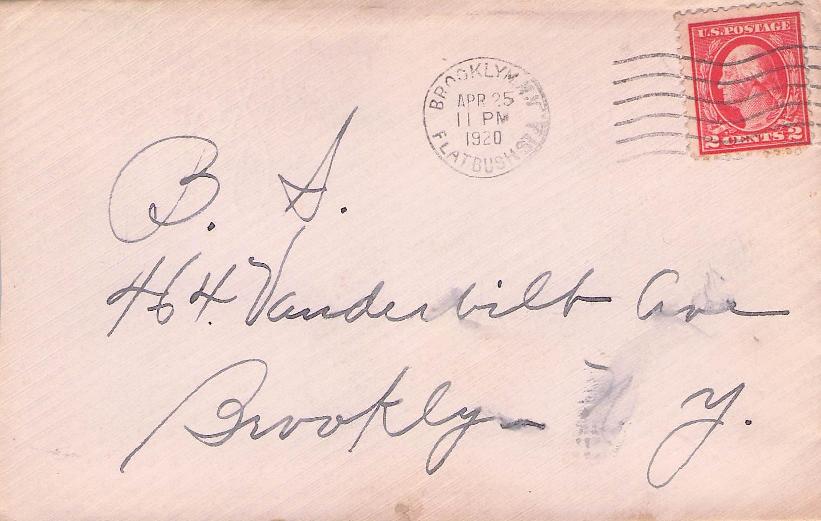 U.S. POSTAGE
2 CENTS 2
BROOKLYN, N.Y.
APR 25
11 PM
1920
FLATBUSH STA.
B. S.
464 Vanderbilt Ave
Brooklyn N Y.